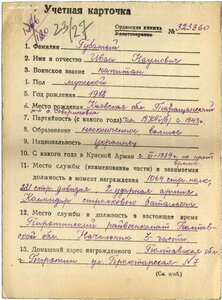 Учетная карточка
23/27
Орденская книжка № 323360
Удостоверение
1. Фамилия Губатый
2. Имя и отчество Иван Наумович
3. Воинское звание капитан
4. Пол мужской
5. Год рождения 1918
6. Место рождения Киевская обл. Таращанский
7. Партийность (с какого года) чл. ВКП(б) с 1943 г.
8. Образование неоконченное высшее
9. Национальность украинец
10. С какого года в Красной Армии с II-1939 г. по наст. время
11. Место службы (наименование части) и занимаемая
должность в момент награждения 1064 стр. полк,
281 стр. дивизия 2 ударная армия.
Командир стрелкового батальона
12. Место службы и должность в настоящее время
Пирятинский райвоенкомат Полтав-
ской обл. Начальник 3 части
13. Домашний адрес награжденного Полтавская обл.
г. Пирятин ул. Пролетарская № 7
(См. н/об.)